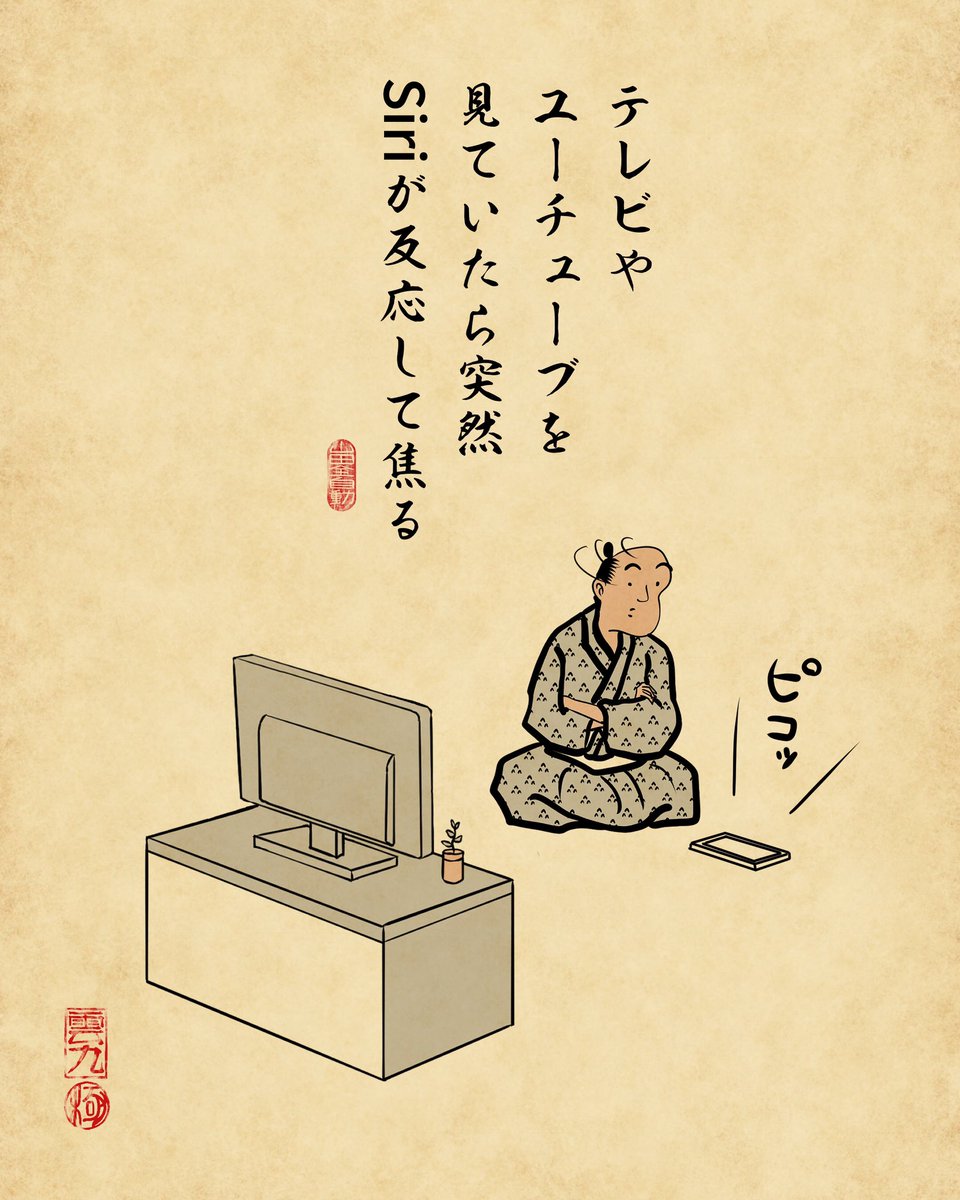 テレビや
ユーチューブを
見ていたら突然
Siriが反応して焦る
ピコッ